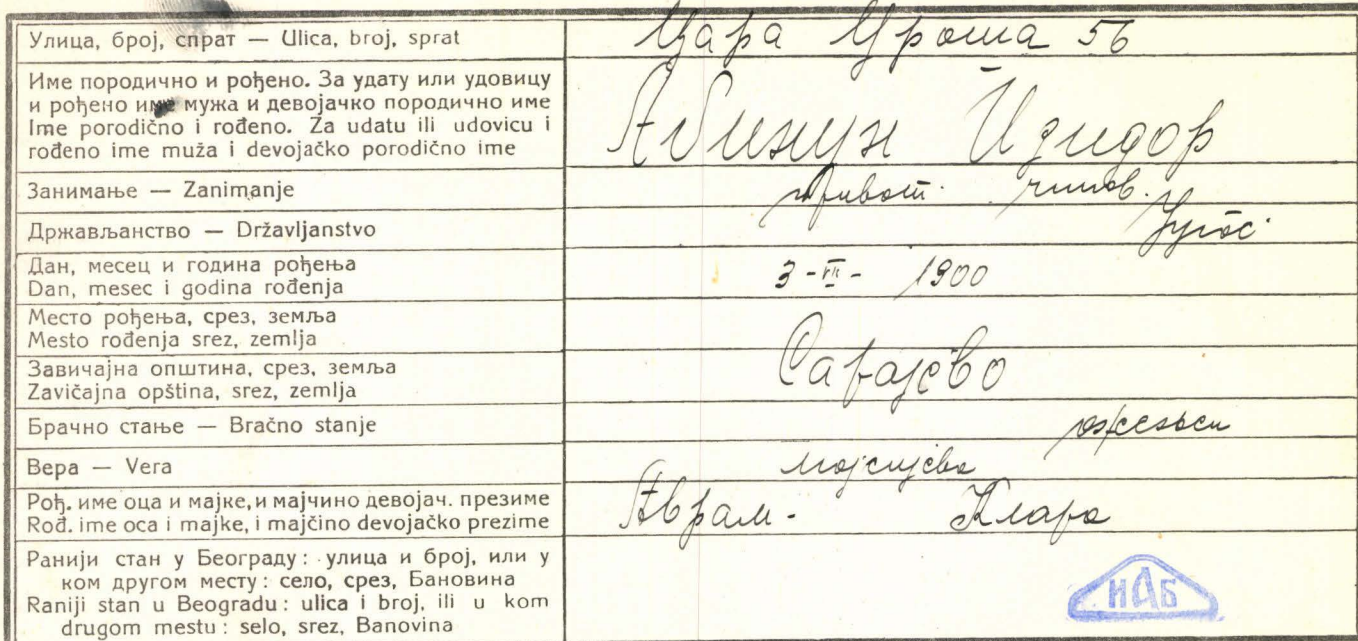 Улица, број, спрат — Ulica, broj, sprat
Цара Уроша 56
Име породично и рођено. За удату или удовицу
и рођено име мужа и девојачко породично име
Ime porodično i rođeno. Za udatu ili udovicu i
rođeno ime muža i devojačko porodično ime
Абинун Изидор
Занимање — Zanimanje
приват. чинов.
Држављанство — Državljanstvo
Југос.
Дан, месец и година рођења
Dan, mesec i godina rođenja
3-VII- 1900
Место рођења, срез, земља
Mesto rođenja srez, zemlja
Завичајна општина, срез, земља
Zavičajna opština, srez, zemlja
Сарајево
Брачно стање — Bračno stanje
ожењен
Вера — Vera
мојсијева
Рођ. име оца и мајке, и мајчино девојач. презиме
Rođ. ime oca i majke, i majčino devojačko prezime
Аврам. Клара
Ранији стан у Београду: улица и број, или у
ком другом месту: село, срез, Бановина
Raniji stan u Beogradu: ulica i broj, ili u kom
drugom mestu: selo, srez, Banovina
ИАБ